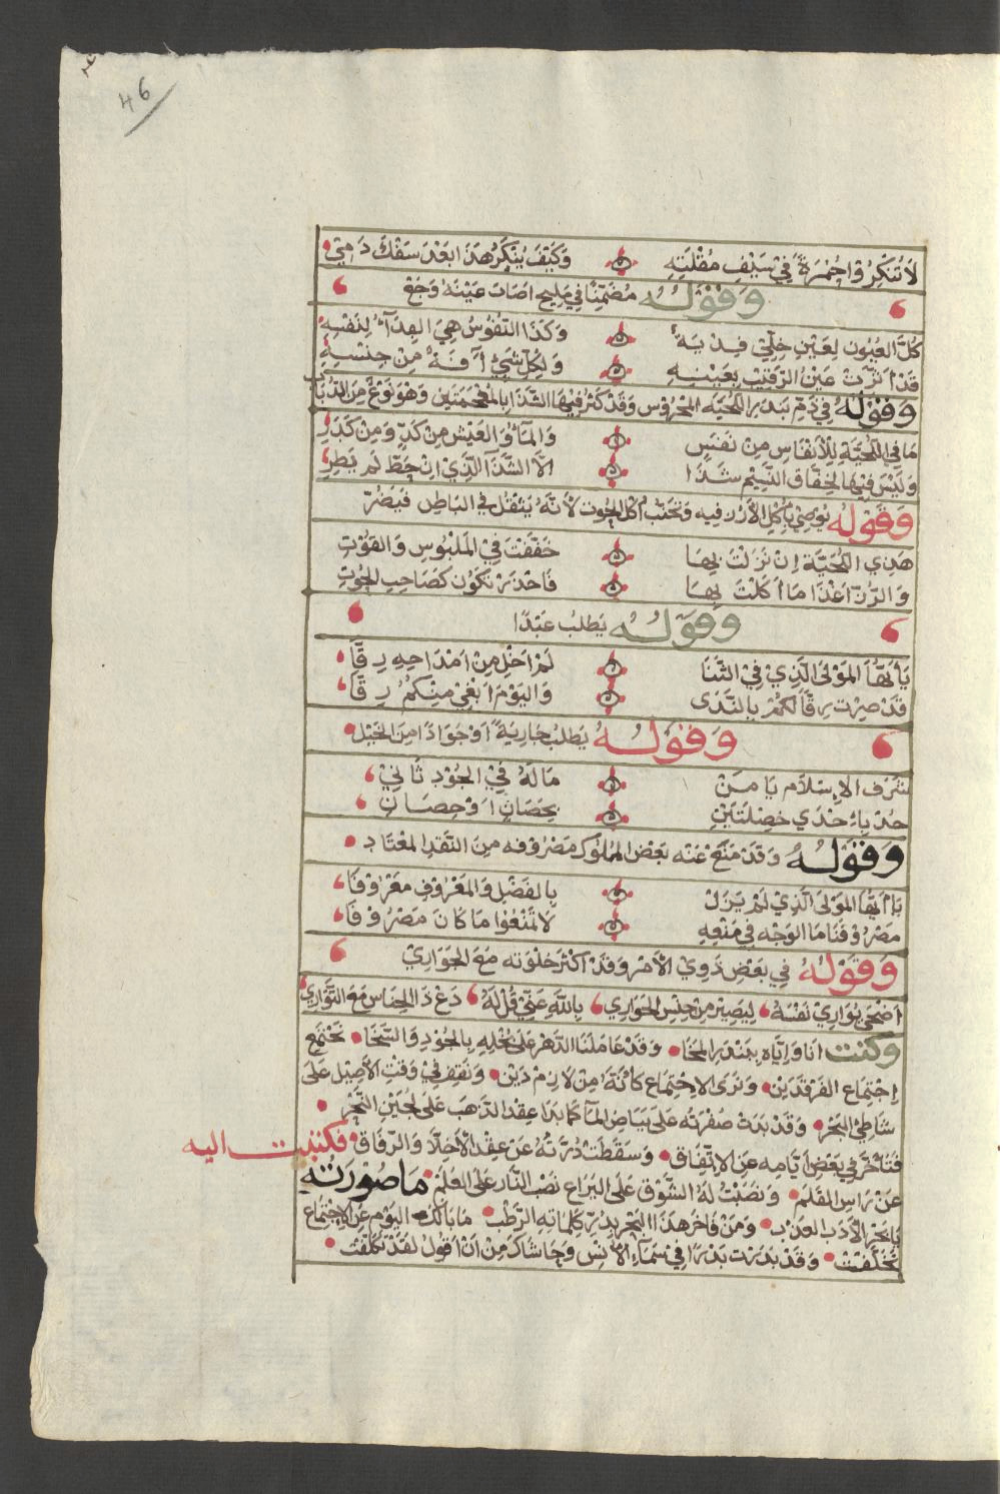 46
لَا تُنكِرُوا حُمْرَةً فِي سَيْفِ مُقْلَتِهِ وَكَيْفَ يُنْكَرُ هَذَا بَعْدَ سَفْكِ دَمِي
وَقَوْلُهُ مُضَمِّنًا فِي مَلِيحٍ أصَابَ عَيْنَهُ وَجَعٌ
كُلُّ العُيُونِ لِعَيْنِ خِلِّي فِدْيَةٌ وَكَذَا النُّفُوسُ هِيَ الفِدَآءُ لِنَفْسِهِ
قَدْ أثَّرَتْ عَيْنُ الرَّقِيبِ بِعَيْنِهِ وَلِكُلِّ شَيْءٍ آفَةٌ مِنْ جِنْسِهِ
وَقَوْلُهُ فِي ذَمِّ بَنْدَرِ اللُّحَيَّهِ المَحْرُوسِ وَقَدْ كَثُرَ فِيهَا الشَّذَا بِالمُعْجَمَتَيْنِ وَهُوَ نَوْعٌ مِنَ الذُّبَابِ
مَا فِي اللُّحَيَّةِ لِلْأنْفَاسِ مِنْ نَفَسٍ وَالمَآءُ وَالعَيْشُ مِنْ كَدٍّ وَمِنْ كَدَرِ
وَلَيْسَ فِيهَا لِخَفَّاقِ النَّسِيمِ شَذَا الَّا الشَّذَآ الَّذِي انْ حَطَّ لَمْ يَطِرِ
وَقَوْلُهُ يُوصِي بِأكْلِ الأرُزِ فِيهِ وَتَجَنُّبِ أكْلِ الحُوتِ لأنَّهُ يَثْقُلُ فِي البَاطِنِ فَيَضُرُّ
هَذِي اللُّحَيَّةُ إنْ نَزَلْتَ بِهَا خَفِّفْتَ فِي المَلْبُوسِ وَالقُوْتِ
وَالرُّزّ اغْذَا مَا أكَلْتَ بِهَا فَاحْذَرْ تَكُوْن كَصَاحِبِ الحُوْتِ
وَقَوْلُهُ يَطْلُبُ عَبْدًا
يَا أيُّهَا المَوْلَى الَّذِي فِي الثَّنَا لَمْ اَخْلُ مِنْ امْدَاحِهِ رِقَّا
قَدْ صِرْت رِقًّا لَكُمُ بِالنَّدَى وَاليَوْمَ ابْغِي مِنْكُمُ رِقَّا
وَقَوْلُهُ يَطْلُبُ جَارِيَةً أوْ جَوَادًا مِنَ الخَيْلِ
شَرَف الإسْلَام يَا مَنْ مَا لَهُ فِي الجُوْدِ ثَانِي
جُدْ بِإحْدَى خصْلَتَيْنِ بِحَصَانٍ أوْ حِصَانِ
وَقَوْلُهُ وَقَدْ مَنَعَ عَنْهُ بَعْضُ المُلُوكِ مَصْرُوفَهُ مِنَ النَّقْدِ المُعْتَادِ
يَا أيُّهَا المَوْلَى الَّذِي لَمْ يَزَلْ بِالفَضْلِ وَالمَعْرُوفِ مَعْرُوفَا
مَصْرُوْفَنَا مَا الوَجْه فِي مَنْعِهِ لَا تَمْنَعُوا مَا كَانَ مَصْرُوْفَا
وَقَوْلُهُ فِي بَعْضِ ذَوِي الأمْرِ وَقَدْ أكْثَرَ خلْوَته مَعَ الجَوَارِي
اَضْحَى يُوَارِي نَفْسَهُ لِيَصِيْرَ مِنْ جِنْسِ الجَوَارِي بِاللَّهِ عَنِّي قُلْ لَهُ دَعْ ذَا الجِنَاسَ مَعَ التَّوَارِي
وَكُنْت أنَا وَإيَّاه بِبَنْدَرِ المَخَا وَقَدْ عَامَلَنَا الدَّهْرُ عَلَى بُخْلِهِ بِالجُوْدِ وَالسَّخَا نَجْتَمِعُ
إجْتِمَاع الفَرْقَدَيْنِ وَنَرَى الإجْتِمَاع كَأنَّهُ مِنْ لَازِمِ دَيْنٍ وَنَقِفُ فِي وَقْتِ الأصِيْلِ عَلَى
شَاطِئِ البَحْرِ وَقَدْ بَدَتْ صُفْرَتُه عَلَى بَيَاضِ المَآءِ كَمَا بَدَا عِقْدُ الذَّهَبِ عَلَى لُجَيْنِ النَّحْرِ
فَتَأخَّرَ فِي بَعْضِ أيَّامِه عَنِ الإتِّفَاقِ وَسَقَطَتْ دُرَّتُهُ عَنْ عِقْدِ الأخِلَّا وَالرِّفَاقِ فَكَتَبْت اليه
عَنْ رَاسِ القَلَمِ وَنَصَبْتُ لَهُ الشَّوْقَ عَلَى اليَرَاعِ نَصْبَ النَّارِ عَلَى العَلَمِ مَا صُوْرَتُهُ
يَا بَحْرَ الأدَبِ العَذْبِ وَمَنْ فَاخَرَ هَذَا البَحْرَ بِدُرِّ كَلِمَاتِهِ الرَّطْبِ مَا بَالُكَ اليَوْمَ عَنِ الإجْتِمَاعِ
تَخَلَّفْتَ وَقَدْ بَدَرْت بَدْرًا فِي سَمَآءِ الأنْسِ وَحَاشَاكَ مِنْ اَنْ أقُولَ لَقَدْ تَكَلَّفْتَ